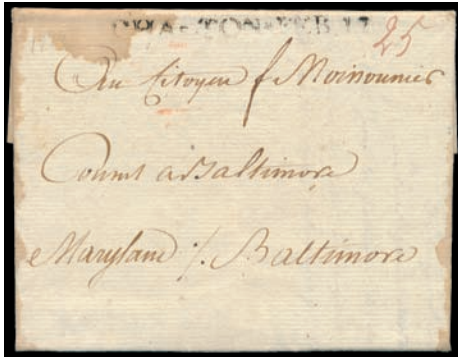 TON•FEB 17
25
Au Citoyen f Moinounier
a Baltimore
Maryland ·/. Baltimore